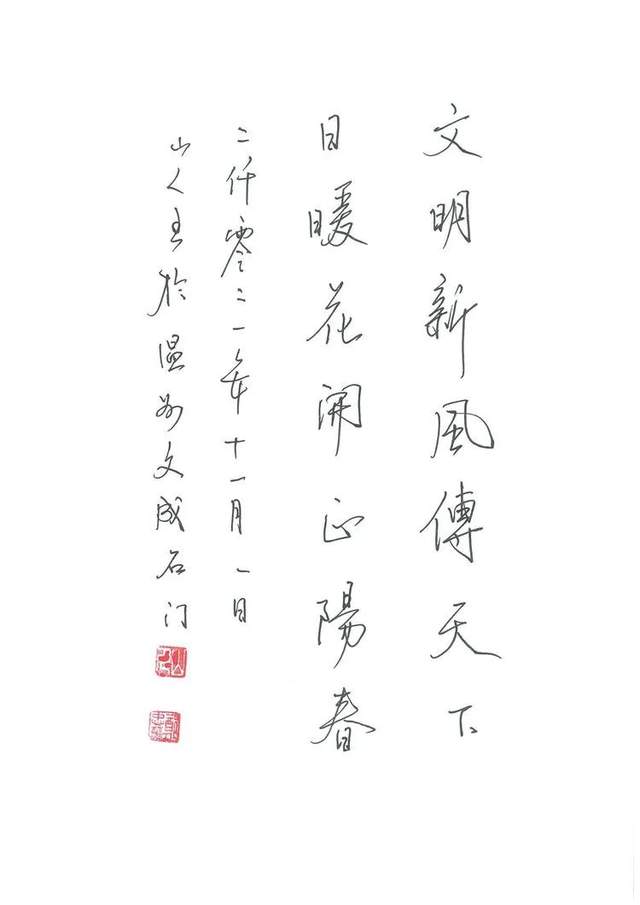 文明新風傳天下
日暖花開正陽春
二仟零二一年十一月一日
山人书於温州文成石门